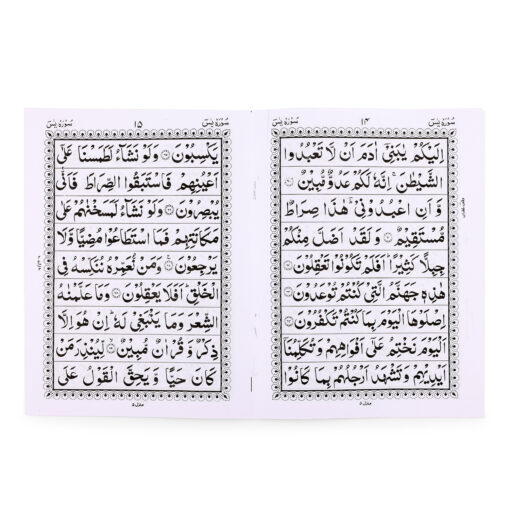 سُوْرَةُ يٰسٓ
١۴
سُوْرَةُ يٰسٓ
اِلَيْكُمْ يٰبَنِيْٓ اٰدَمَ اَنْ لَّا تَعْبُدُوا
الشَّيْطٰنَ ۚ اِنَّهٗ لَكُمْ عَدُوٌّ مُّبِيْنٌ
وَّ اَنِ اعْبُدُوْنِيْ ؔ هٰذَا صِرَاطٌ
مُّسْتَقِيْمٌ وَ لَقَدْ اَضَلَّ مِنْكُمْ
جِبِلًّا كَثِيْرًا ؕ اَفَلَمْ تَكُوْنُوْا تَعْقِلُوْنَ
هٰذِهٖ جَهَنَّمُ الَّتِيْ كُنْتُمْ تُوْعَدُوْنَ
اِصْلَوْهَا الْيَوْمَ بِمَا كُنْتُمْ تَكْفُرُوْنَ
اَلْيَوْمَ نَخْتِمُ عَلٰٓى اَفْوَاهِهِمْ وَ تُكَلِّمُنَآ
اَيْدِيْهِمْ وَ تَشْهَدُ اَرْجُلُهُمْ بِمَا كَانُوْا
سُوْرَةُ يٰسٓ
١۵
سُوْرَةُ يٰسٓ
يَكْسِبُوْنَ وَلَوْ نَشَآءُ لَطَمَسْنَا عَلٰٓى
اَعْيُنِهِمْ فَاسْتَبَقُوا الصِّرَاطَ فَاَنّٰى
يُبْصِرُوْنَ وَلَوْ نَشَآءُ لَمَسَخْنٰهُمْ عَلٰى
مَكَانَتِهِمْ فَمَا اسْتَطَاعُوْا مُضِيًّا وَّلَا
يَرْجِعُوْنَ وَمَنْ نُّعَمِّرْهُ نُنَكِّسْهُ فِي
الْخَلْقِ ؕ اَفَلَا يَعْقِلُوْنَ وَمَا عَلَّمْنٰهُ
الشِّعْرَ وَمَا يَنْۢبَغِيْ لَهٗ ؕ اِنْ هُوَ اِلَّا
ذِكْرٌ وَّ قُرْاٰنٌ مُّبِيْنٌ لِّيُنْذِرَ مَنْ
كَانَ حَيًّا وَّ يَحِقَّ الْقَوْلُ عَلَى